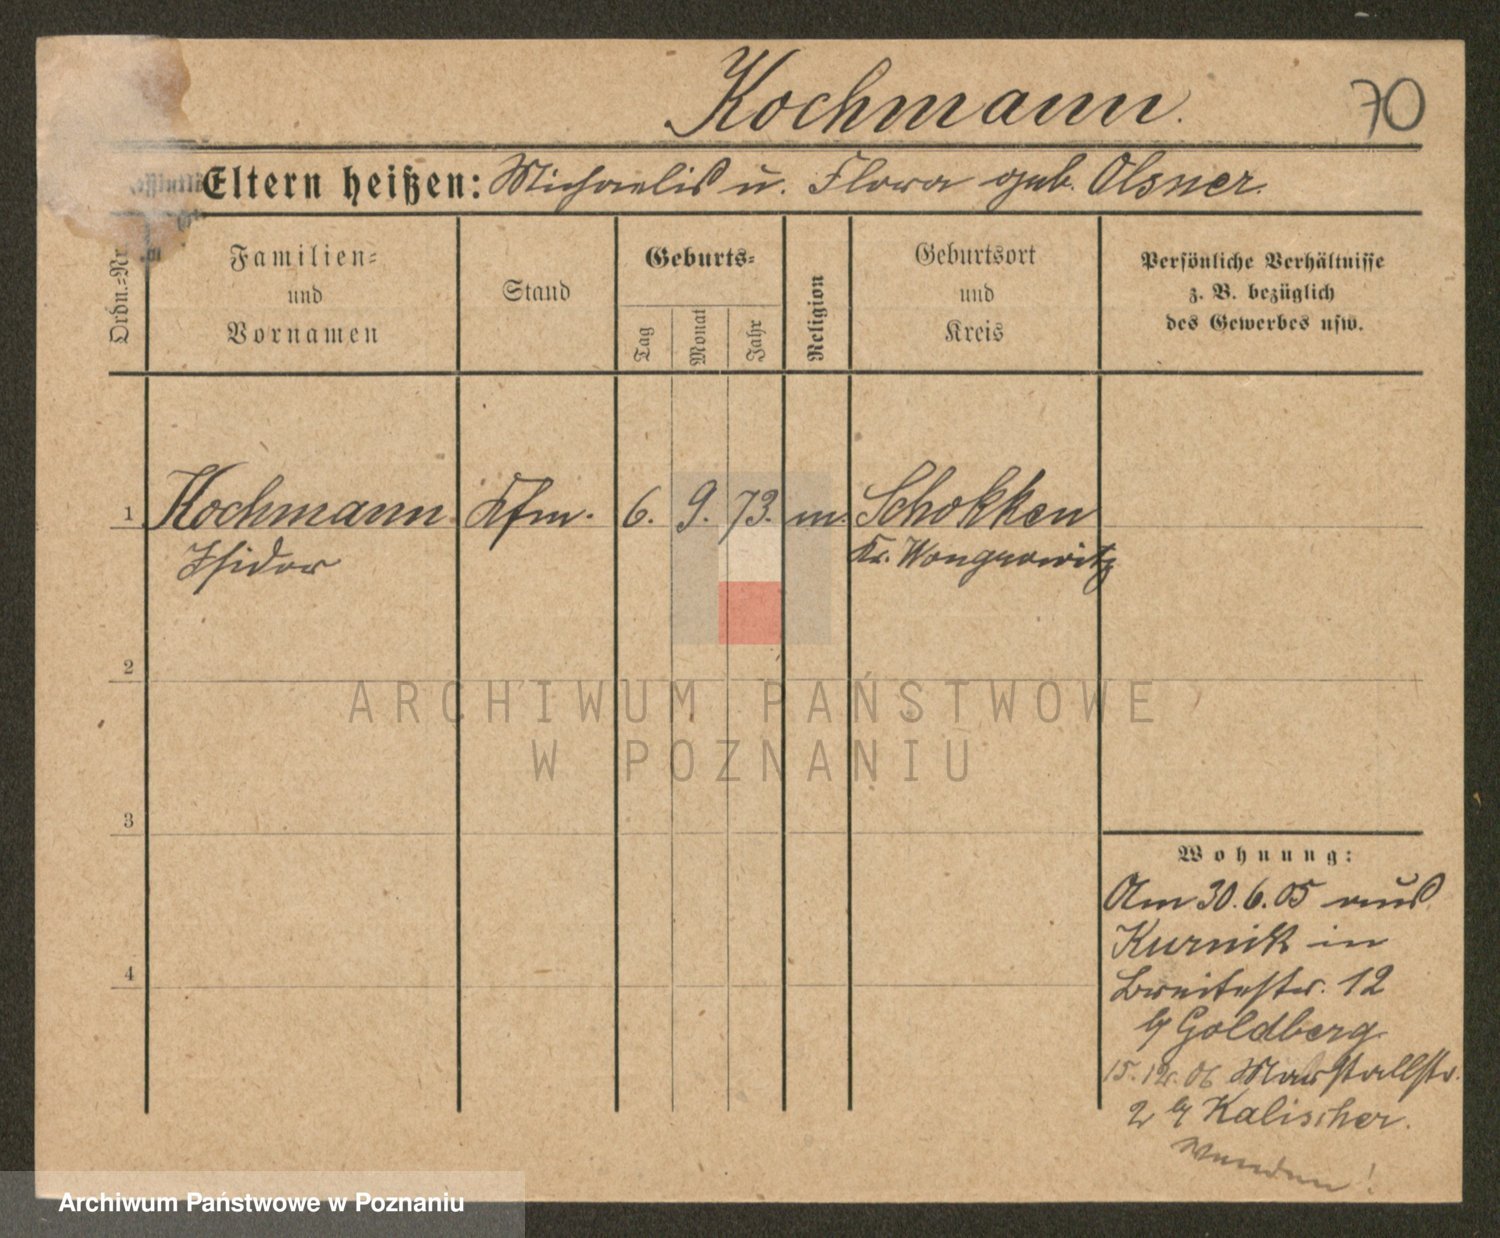 Kochmann.
70
Eltern heißen: Michaelis u. Flora geb. Olsner.
Ordn.=Nr.
Familien=
und
Vornamen
Stand
Geburts=
Tag
Monat
Jahr
Religion
Geburtsort
und
Kreis
Persönliche Verhältnisse
z. B. bezüglich
des Gewerbes usw.
1 Kochmann Kfm. 6. 9. 73. m. Schokken
Isidor Kr. Wongrowitz
2
3
4
Wohnung:
Am 30.6.05 aus
Kurnik in
Breitestr. 12
b/ Goldberg
15.12.06 Marstallstr.
2 b/ Kalischer.
Wenden!
ARCHIWUM PAŃSTWOWE
W POZNANIU
Archiwum Państwowe w Poznaniu